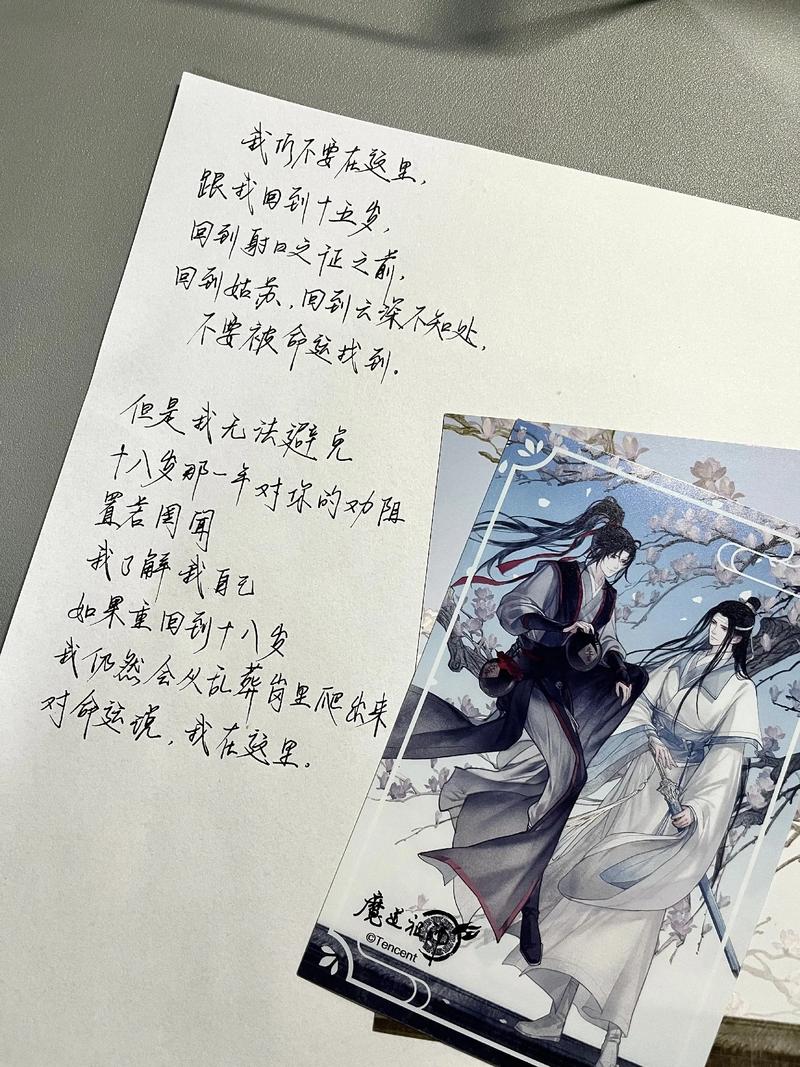 我们不要在这里,
跟我回到十五岁,
回到射日之征之前,
回到姑苏,回到云深不知处,
不要被命运找到.
但是我无法避免
十八岁那一年对你的劝阻
置若罔闻
我了解我自己
如果重回到十八岁
我仍然会从乱葬岗里爬出来
对命运说,我在这里.
魔道祖师
©Tencent